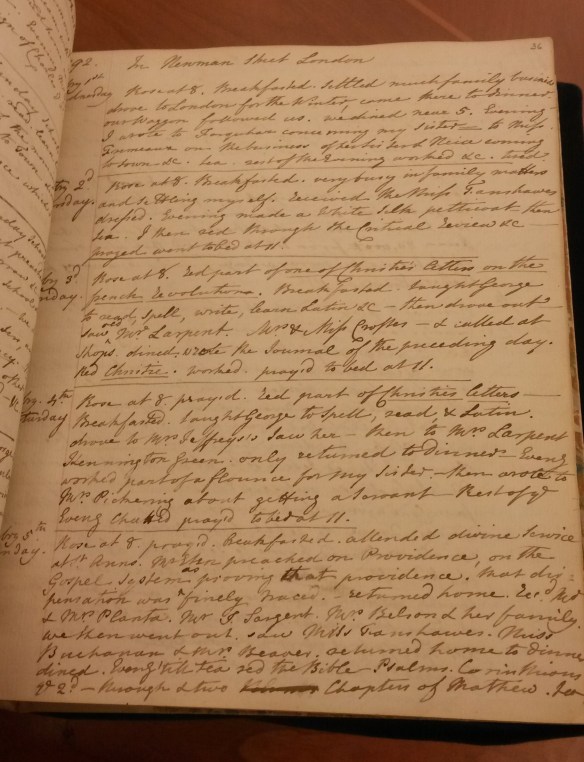 36
792. In Newman Street London
Rose at 8. Breakfasted. Settled much family business
drove to London for the Winter, came there to dinner
our Waggon followed us. we dined near 5. Evening
I wrote to Farquhar concerning my Sister to Miss
on the business of her Sister & Neice coming
to town &c. tea. rest of the Evening worked &c. tired
ry 2d Rose at 8. Breakfasted. very busy in family matters
sday. and settling myself. Received the Miss Fanshawes
dressed. Evening made a White Silk petticoat then
Tea. I then red through the Critical Review &c
prayed went to bed at 11.
ry 3d Rose at 8. Red part of one of Christie's Letters on the
day. french Revolution. Breakfasted. taught George
to read, Spell, write, learn Latin &c — then drove out
saw Mrs Larpent. Mrs & Miss Croftes — & called at
Shops. dined, wrote the Journal of the preceding day.
Red Christie. worked. pray'd to bed at 11.
ry. 4th Rose at 8. pray'd. Red part of Christie's Letters —
turday Breakfasted. taught George to Spell, read & Latin.
drove to Mrs Jeffreys's saw her — then to Mrs Larpent
Kennington Green. only returned to dinner — Eveng
worked part of a flounce for my Sister — then wrote to
Mrs Pickering about getting a Servant — Rest of ye
Eveng Chatted pray'd to bed at 11.
bry 5th Rose at 8. pray'd. Breakfasted. attended divine Service
nday. at St Anns. preached on Providence, on the
Gospel System as proving that providence. that dis=
pensation was finely traced. — returned home. Recd Mr
& Mrs Planta. Mr F Sargent. Mrs Belson & her family.
we then went out. saw Miss Fanshawes. Miss
Buchanan & Mrs Beaver. returned home to dinner
dined. Eveng till tea red the Bible — Psalms. Corinthians
ye 2d — through & two Chapters of Mathew.